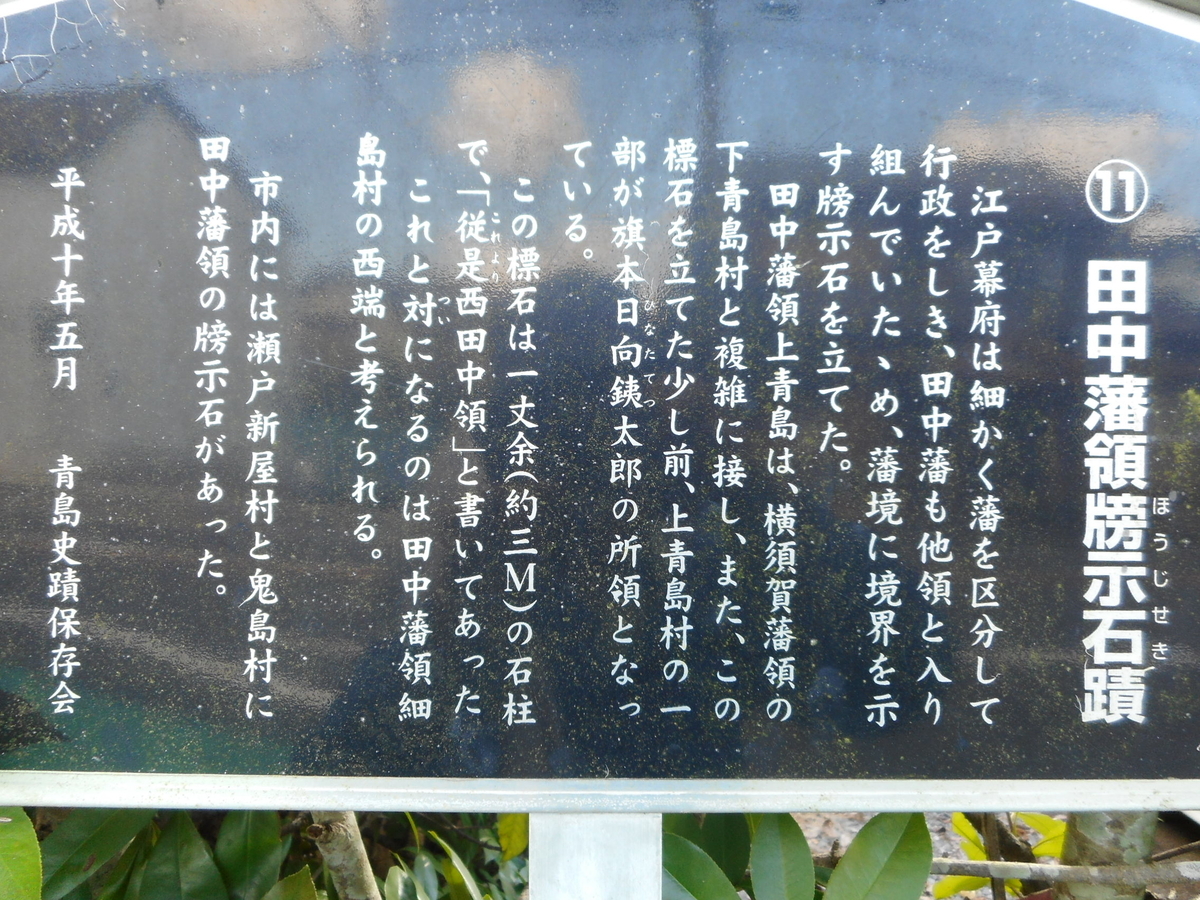 ⑪田中藩領牓示石蹟
ほうじせき
江戸幕府は細かく藩を区分して
行政をしき、田中藩も他領と入り
組んでいたゝめ、藩境に境界を示
す牓示石を立てた。
田中藩領上青島は、横須賀藩領の
下青島村と複雑に接し、また、この
標石を立てた少し前、上青島村の一
部が旗本日向銕太郎の所領となっ
ひなたてつ
ている。
この標石は一丈余(約三M)の石柱
で、「従是西田中領」と書いてあった
これより
これと対になるのは田中藩領細
つい
島村の西端と考えられる。
市内には瀬戸新屋村と鬼島村に
田中藩領の牓示石があった。
平成十年五月 青島史蹟保存会